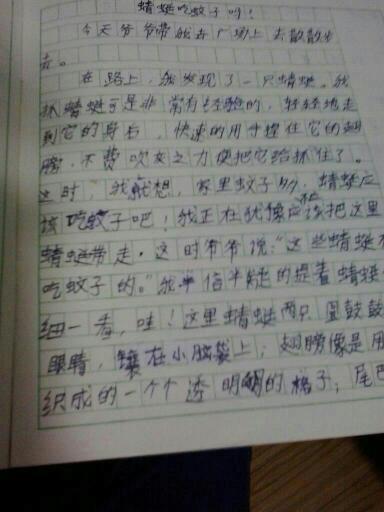 蜻蜓吃蚊子吗!
今天爷爷带我去广场上去散散步
去。
在路上,我发现了一只蜻蜓。我
抓蜻蜓可是非常有经验的,轻轻地走
到它的身后,快速的用手捏住它的翅
膀,不费吹灰之力便把它给抓住了。
这时,我就想,家里蚊子多,蜻蜓应
该吃蚊子吧!我正在犹豫应不应该把这里
蜻蜓带走。这时爷爷说:"这些蜻蜓
吃蚊子的。"我半信半疑的提着蜻蜓
细一看,哇!这里蜻蜓两只圆鼓鼓
眼睛,镶在小脑袋上;翅膀像是用
织成的一个个透明的格子;尾巴